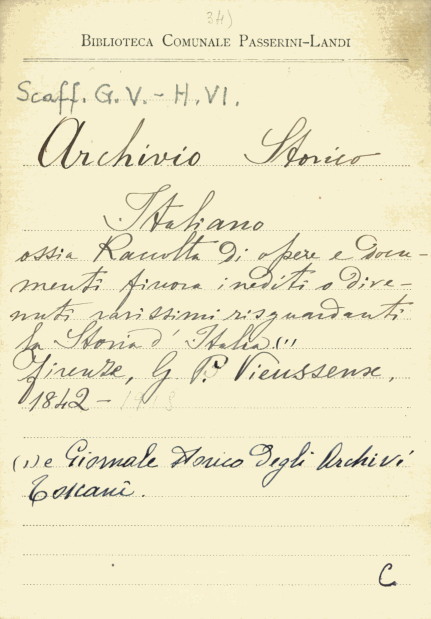 34)
BIBLIOTECA COMUNALE PASSERINI-LANDI
Scaff. G. V. - H. VI.
Archivio Storico
Italiano
ossia Raccolta di opere e docu-
menti finora inediti o dive-
nuti rarissimi risguardanti
la Storia d'Italia (1)
Firenze, G. P. Vieussenx,
1842 -
(1) e Giornale storico degli Archivi
Toscani.
C